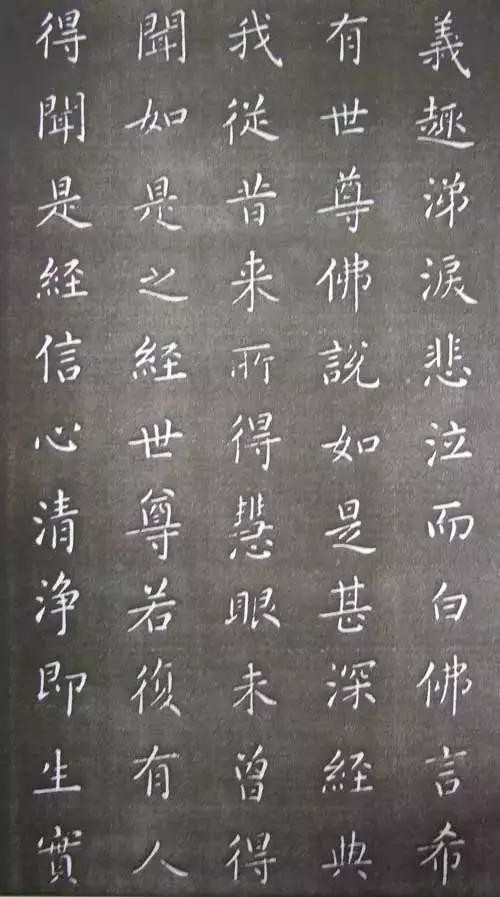 義趣涕淚悲泣而白佛言希
有世尊佛說如是甚深經典
我從昔来所得慧眼未曾得
聞如是之経世尊若復有人
得聞是経信心清浄即生實